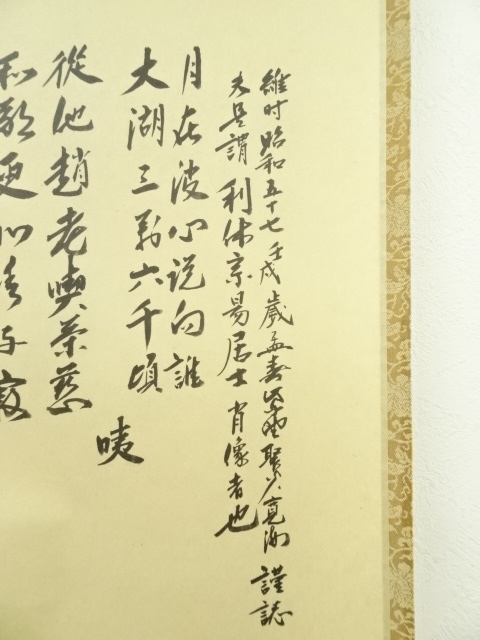 和歌更
從他趙老喫茶慈
咦
大湖三萬六千頃
月在波心説向誰
夫是謂利休宗易居士肖像者也
維时昭和五十七壬戌歳孟春 謹誌